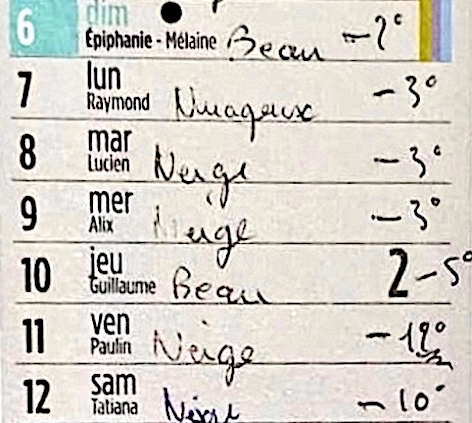 6 dim
Épiphanie - Mélaine Beau -2°
7 lun
Raymond Nuageux -3°
8 mar
Lucien Neige -3°
9 mer
Alix Neige -3°
10 jeu
Guillaume Beau 2 -5°
11 ven
Paulin Neige
12 sam
Tatiana Neige -10°